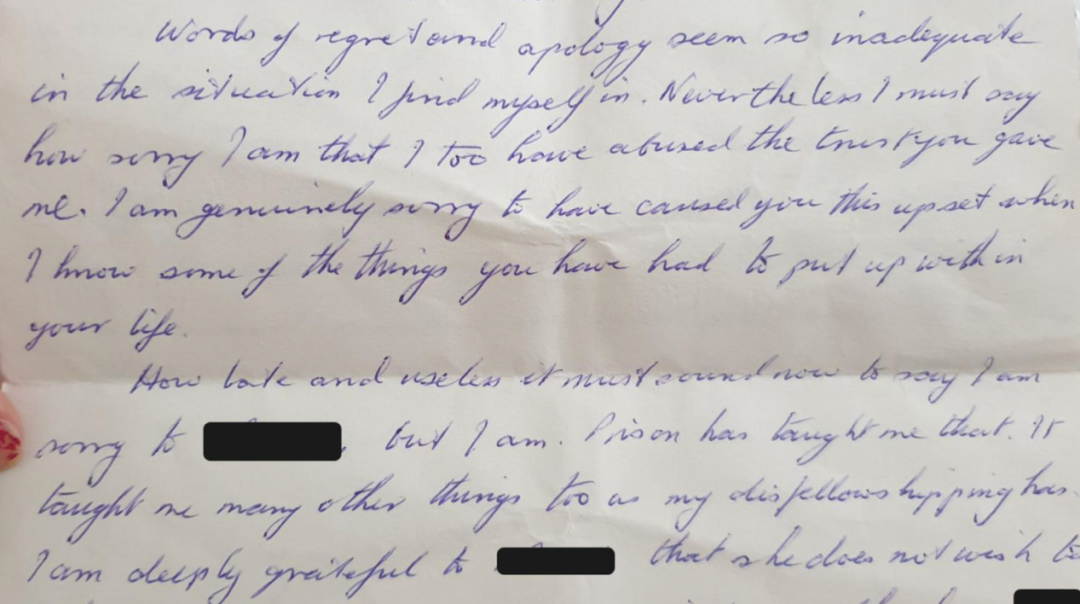 Words of regret and apology seem so inadequate
in the situation I find myself in. Nevertheless I must say
how sorry I am that I too have abused the trust you gave
me. I am genuinely sorry to have caused you this upset when
I know some of the things you have had to put up with in
your life.
How late and useless it must sound now to say I am
sorry to , but I am. Prison has taught me that. It
taught me many other things too as my disfellowshipping has.
I am deeply grateful to that she does not wish to